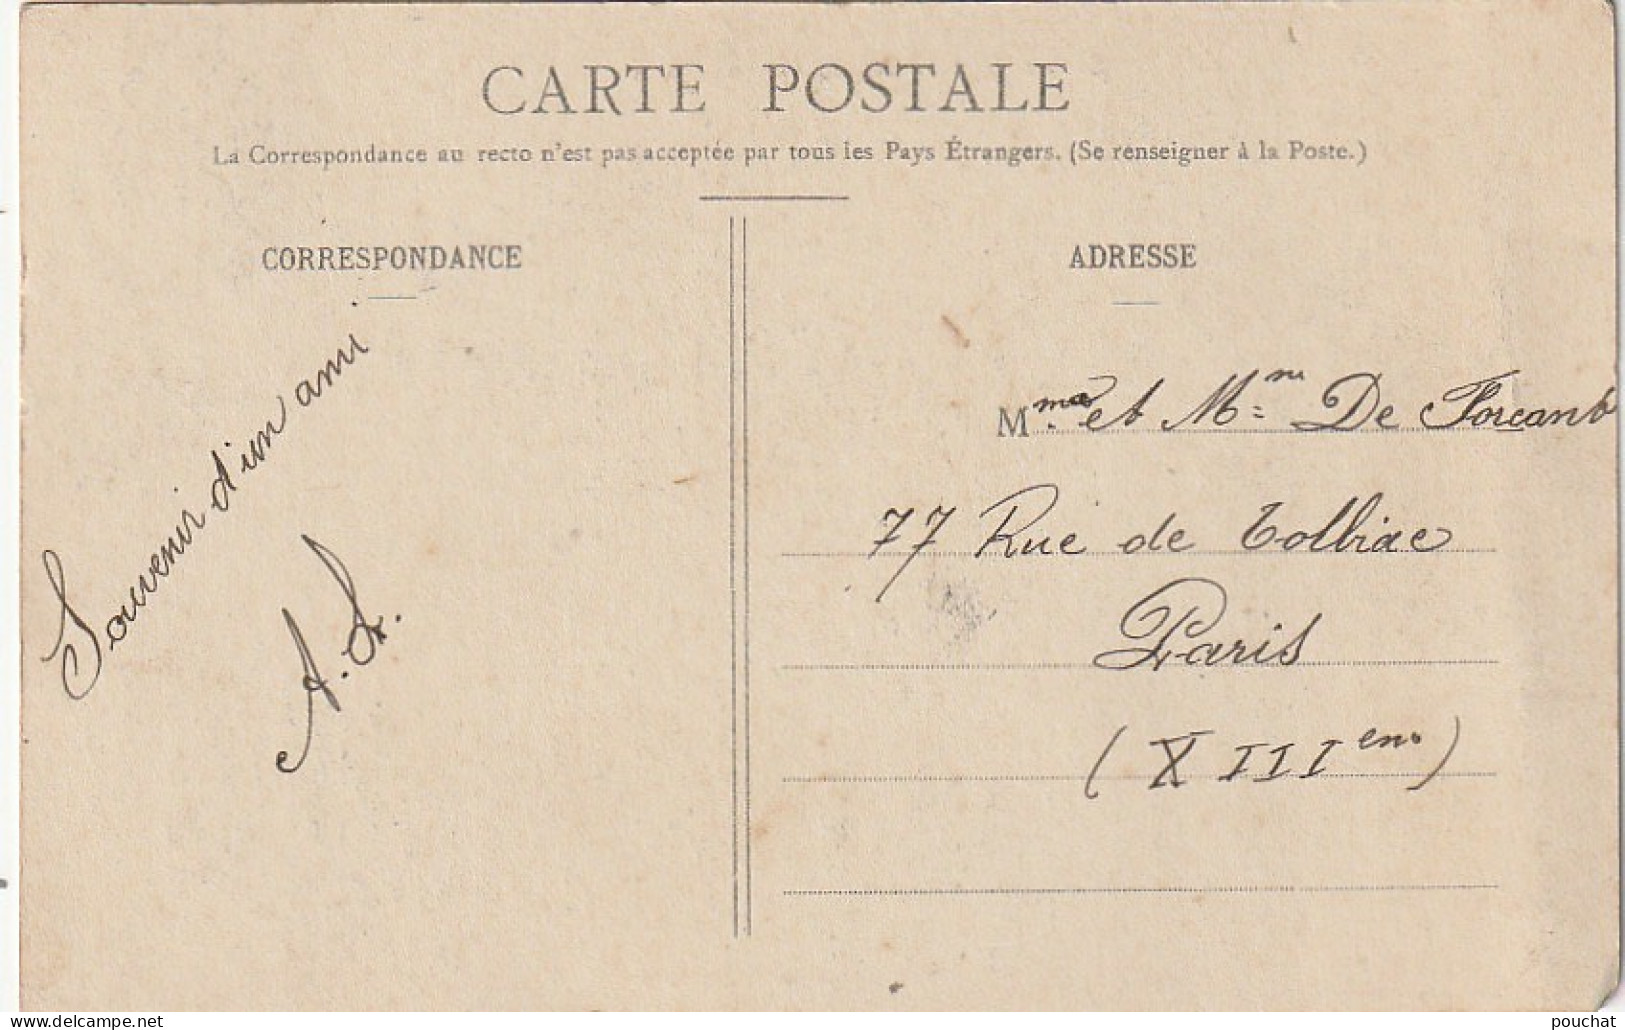 CARTE POSTALE
La Correspondance au recto n'est pas acceptée par tous les Pays Étrangers. (Se renseigner à la Poste.)
CORRESPONDANCE
Souvenir d'un ami
ADRESSE
et De Forcant
77 Rue de Tolbiac
Paris
(XIII eme)
www.delcampe.net
pouchat